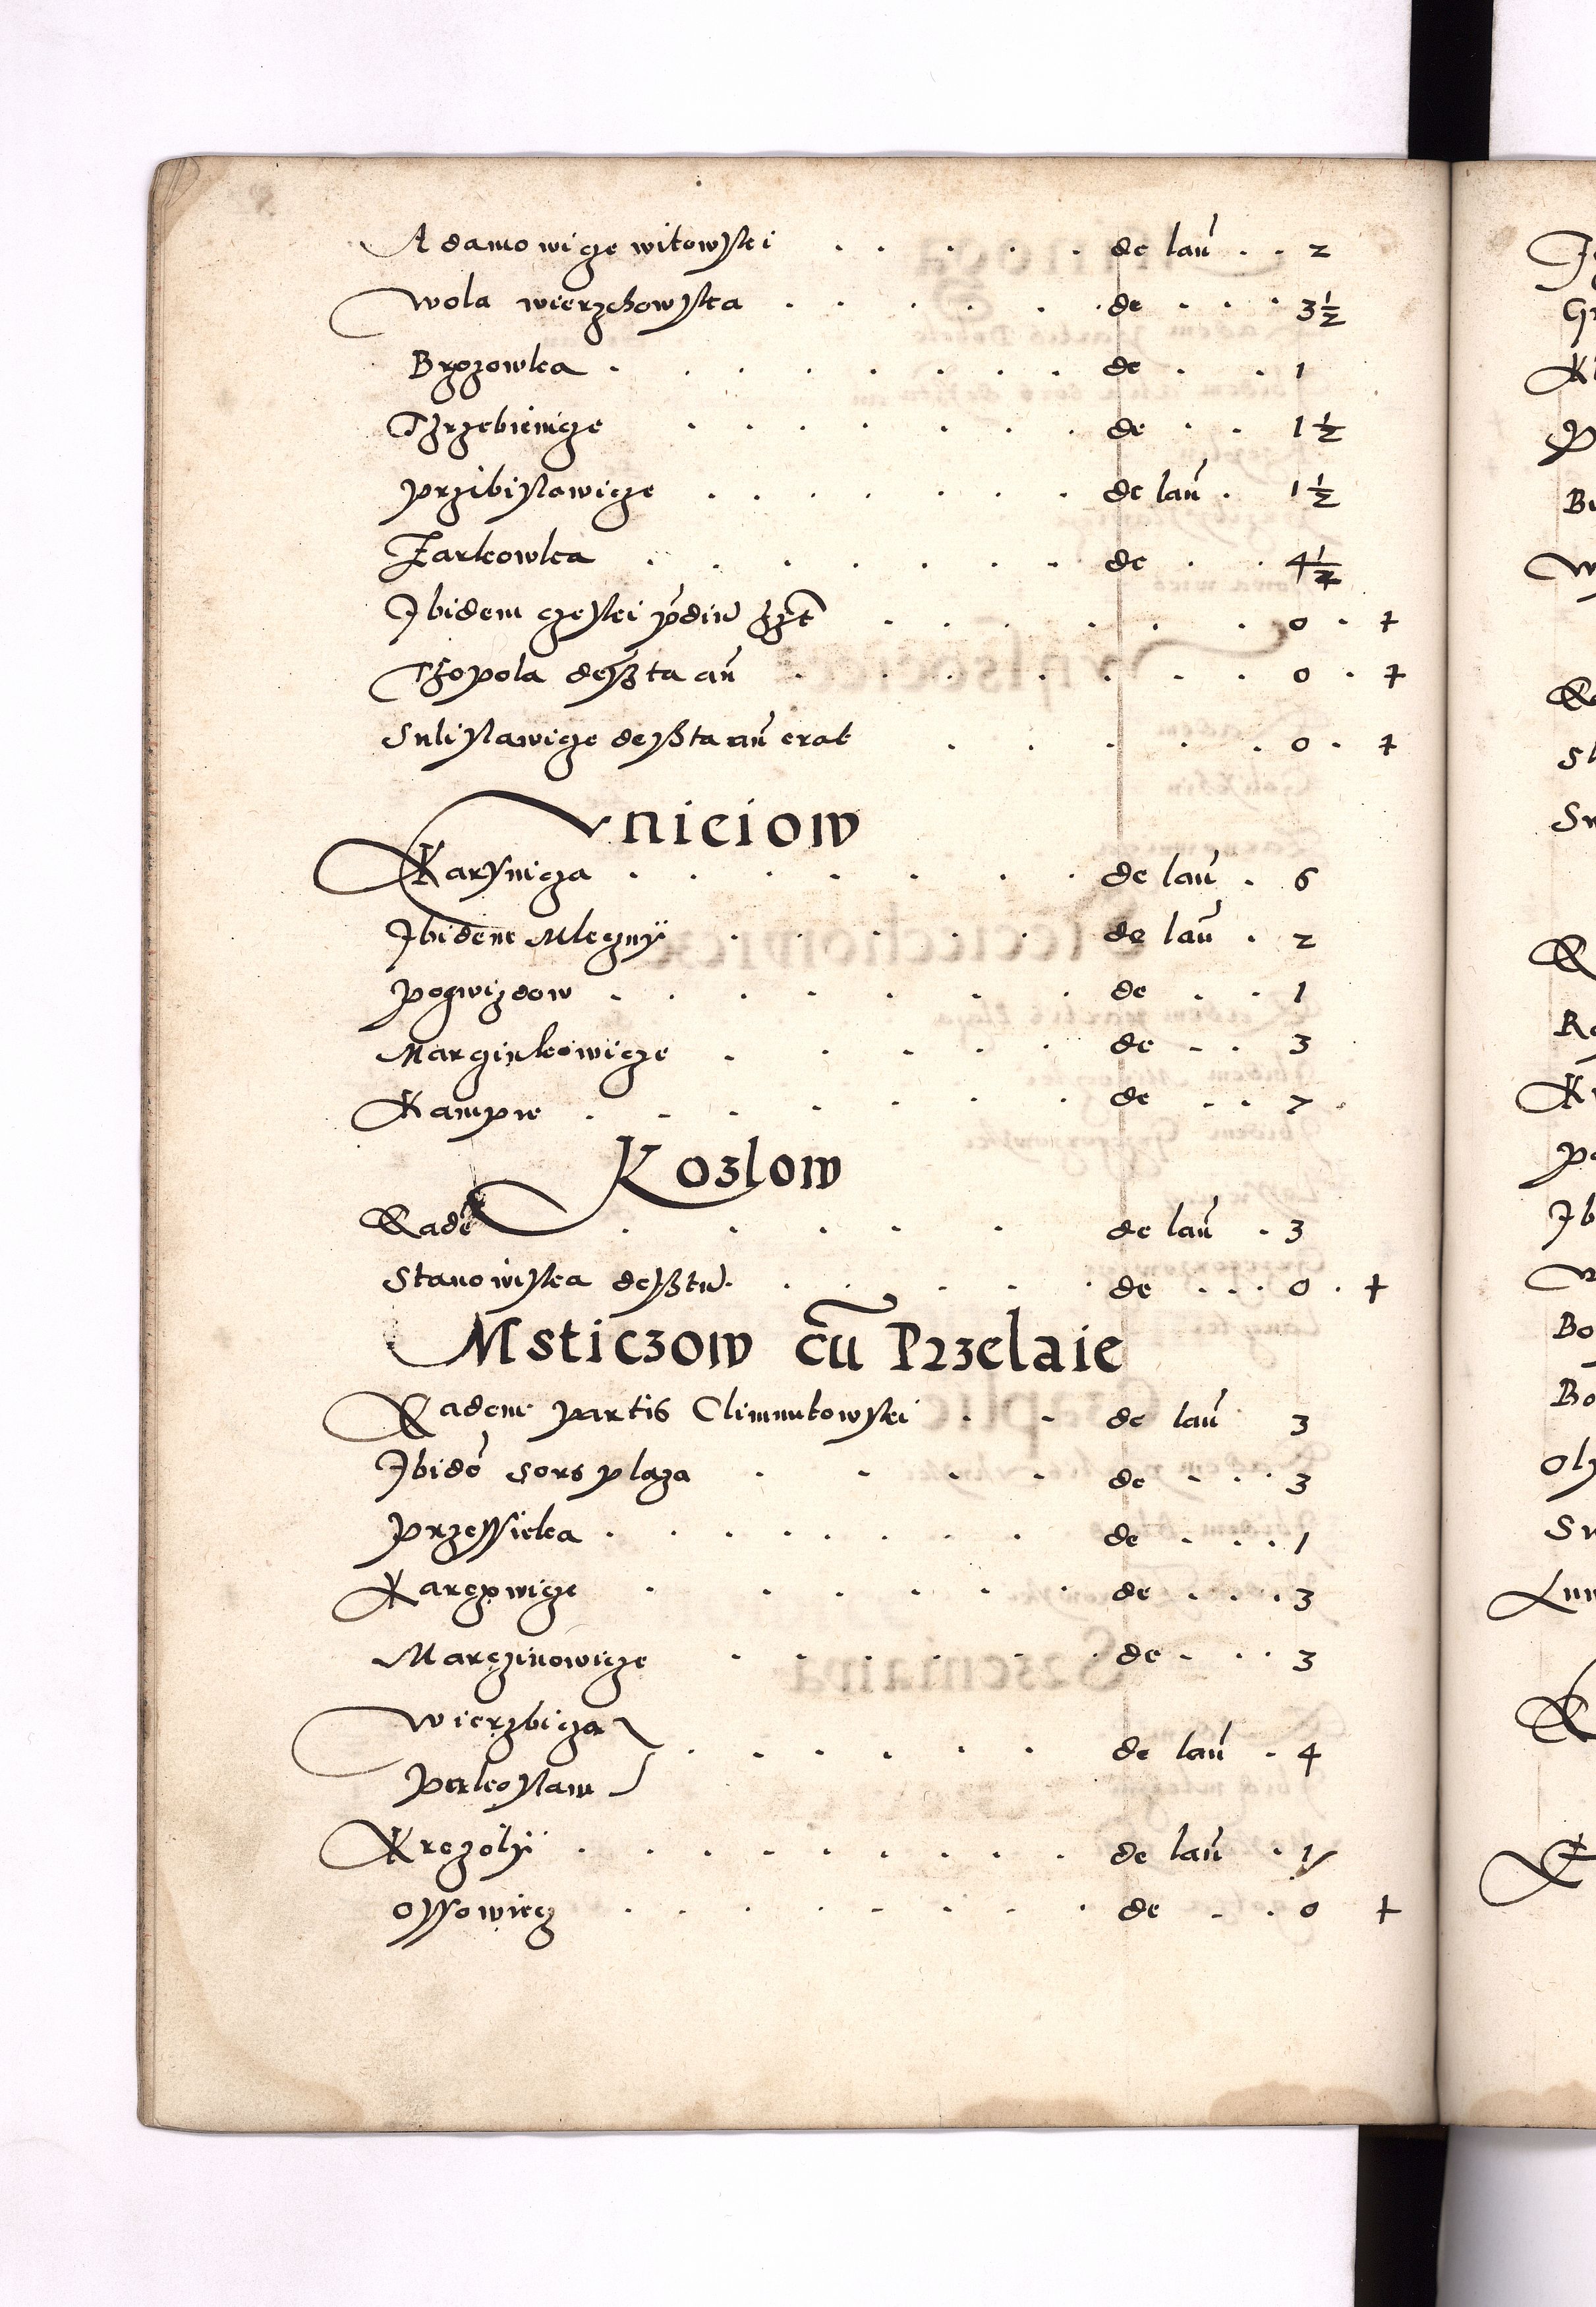 Adamowicze witowskei . . . . . de lan̄ . . 2
wola wierzchowska . . . . . de . . . 3½
Brzozowka . . . . . . . . de . . 1
Trzebienicze . . . . . . . de . . 1½
przibislawicze . . . . . . de lan̄ . 1½
Zarkowka . . . . . . . de . . 4½
Ibidem czeskei . . . . . . 0 . +
Topola desßta an̄ . . . . . . . 0 . +
Sulislawicze desßta an̄ erat . . . . . 0 . +
vnieiow
Karsznicza . . . . . . . de lan̄ . 6
Ibidem Mleczny . . . . . de lan̄ . 2
pogwizdow . . . . . . . de . . 1
Marcinkowicze . . . . . de . . 3
Kampie . . . . . . . de . . 7
Kozlow
Eadē . . . . . de lan̄ . 3
Stanowiska desßtu . . . . . de . . . 0 . +
Msticzow cū Przelaie
Eadem partis Climuntowskei . . de lan̄ 3
Ibidē sors plaza . . . . de . . . 3
przessieka . . . . . . . de . . . 1
Karczowicze . . . . . . de . . . 3
Marczinowicze . . . . . . de . . . 3
wierzbicza
pakoslaw . . . . . . de lan̄ . 4
Krczoly . . . . . . . . de lan̄ . 1/
ossowiecz . . . . . . . . de . . 0 +